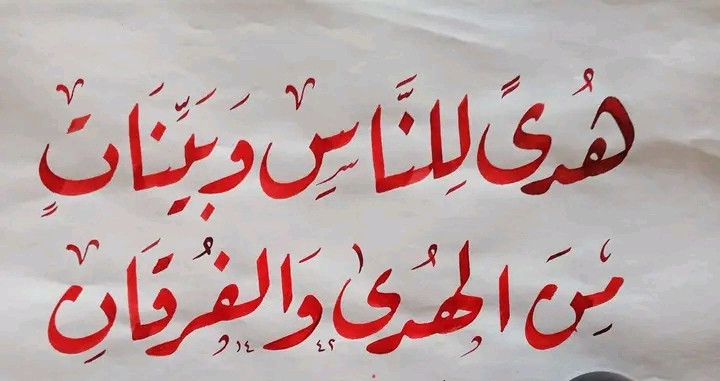 هُدًى لِلنَّاسِ وَبَيِّنَاتٍ
مِنَ الهُدىٰ وَالفُرقَانِ
١٤ ٤٢